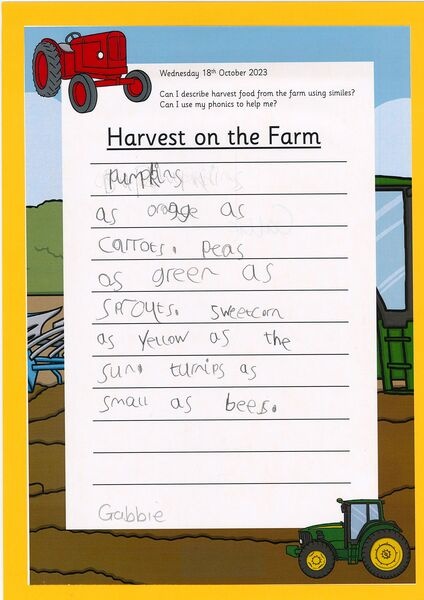 Wednesday 18th October 2023
Can I describe harvest food from the farm using similes?
Can I use my phonics to help me?
Harvest on the Farm
pumpkins
as oragge as
carrots. peas
as green as
sprouts. sweetcorn
as yellow as the
sun. turnips as
small as bees.
Gabbie